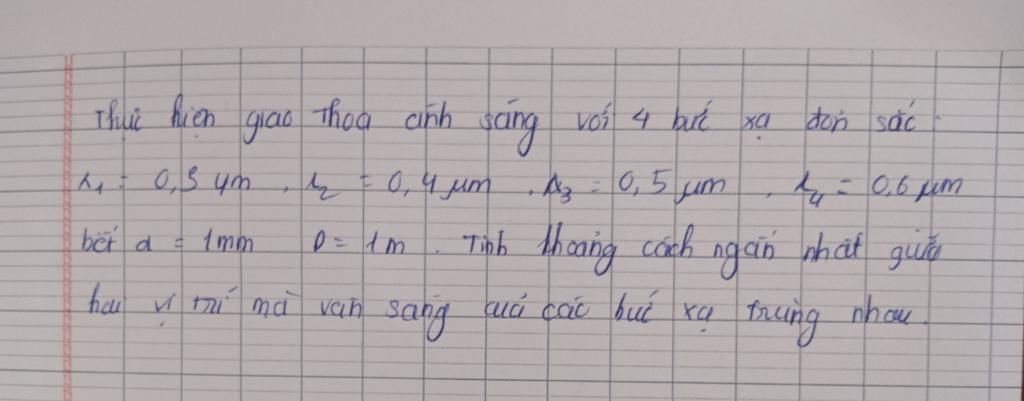 Thực hiện giao thoa ánh sáng với 4 bức xạ đơn sắc.
λ1 = 0,3 μm, λ2 = 0,4 μm, λ3 = 0,5 μm, λ4 = 0,6 μm
bết a = 1mm D = 1m. Tính khoảng cách ngắn nhất giữa
hai vị trí mà vân sáng của các bức xạ trùng nhau.